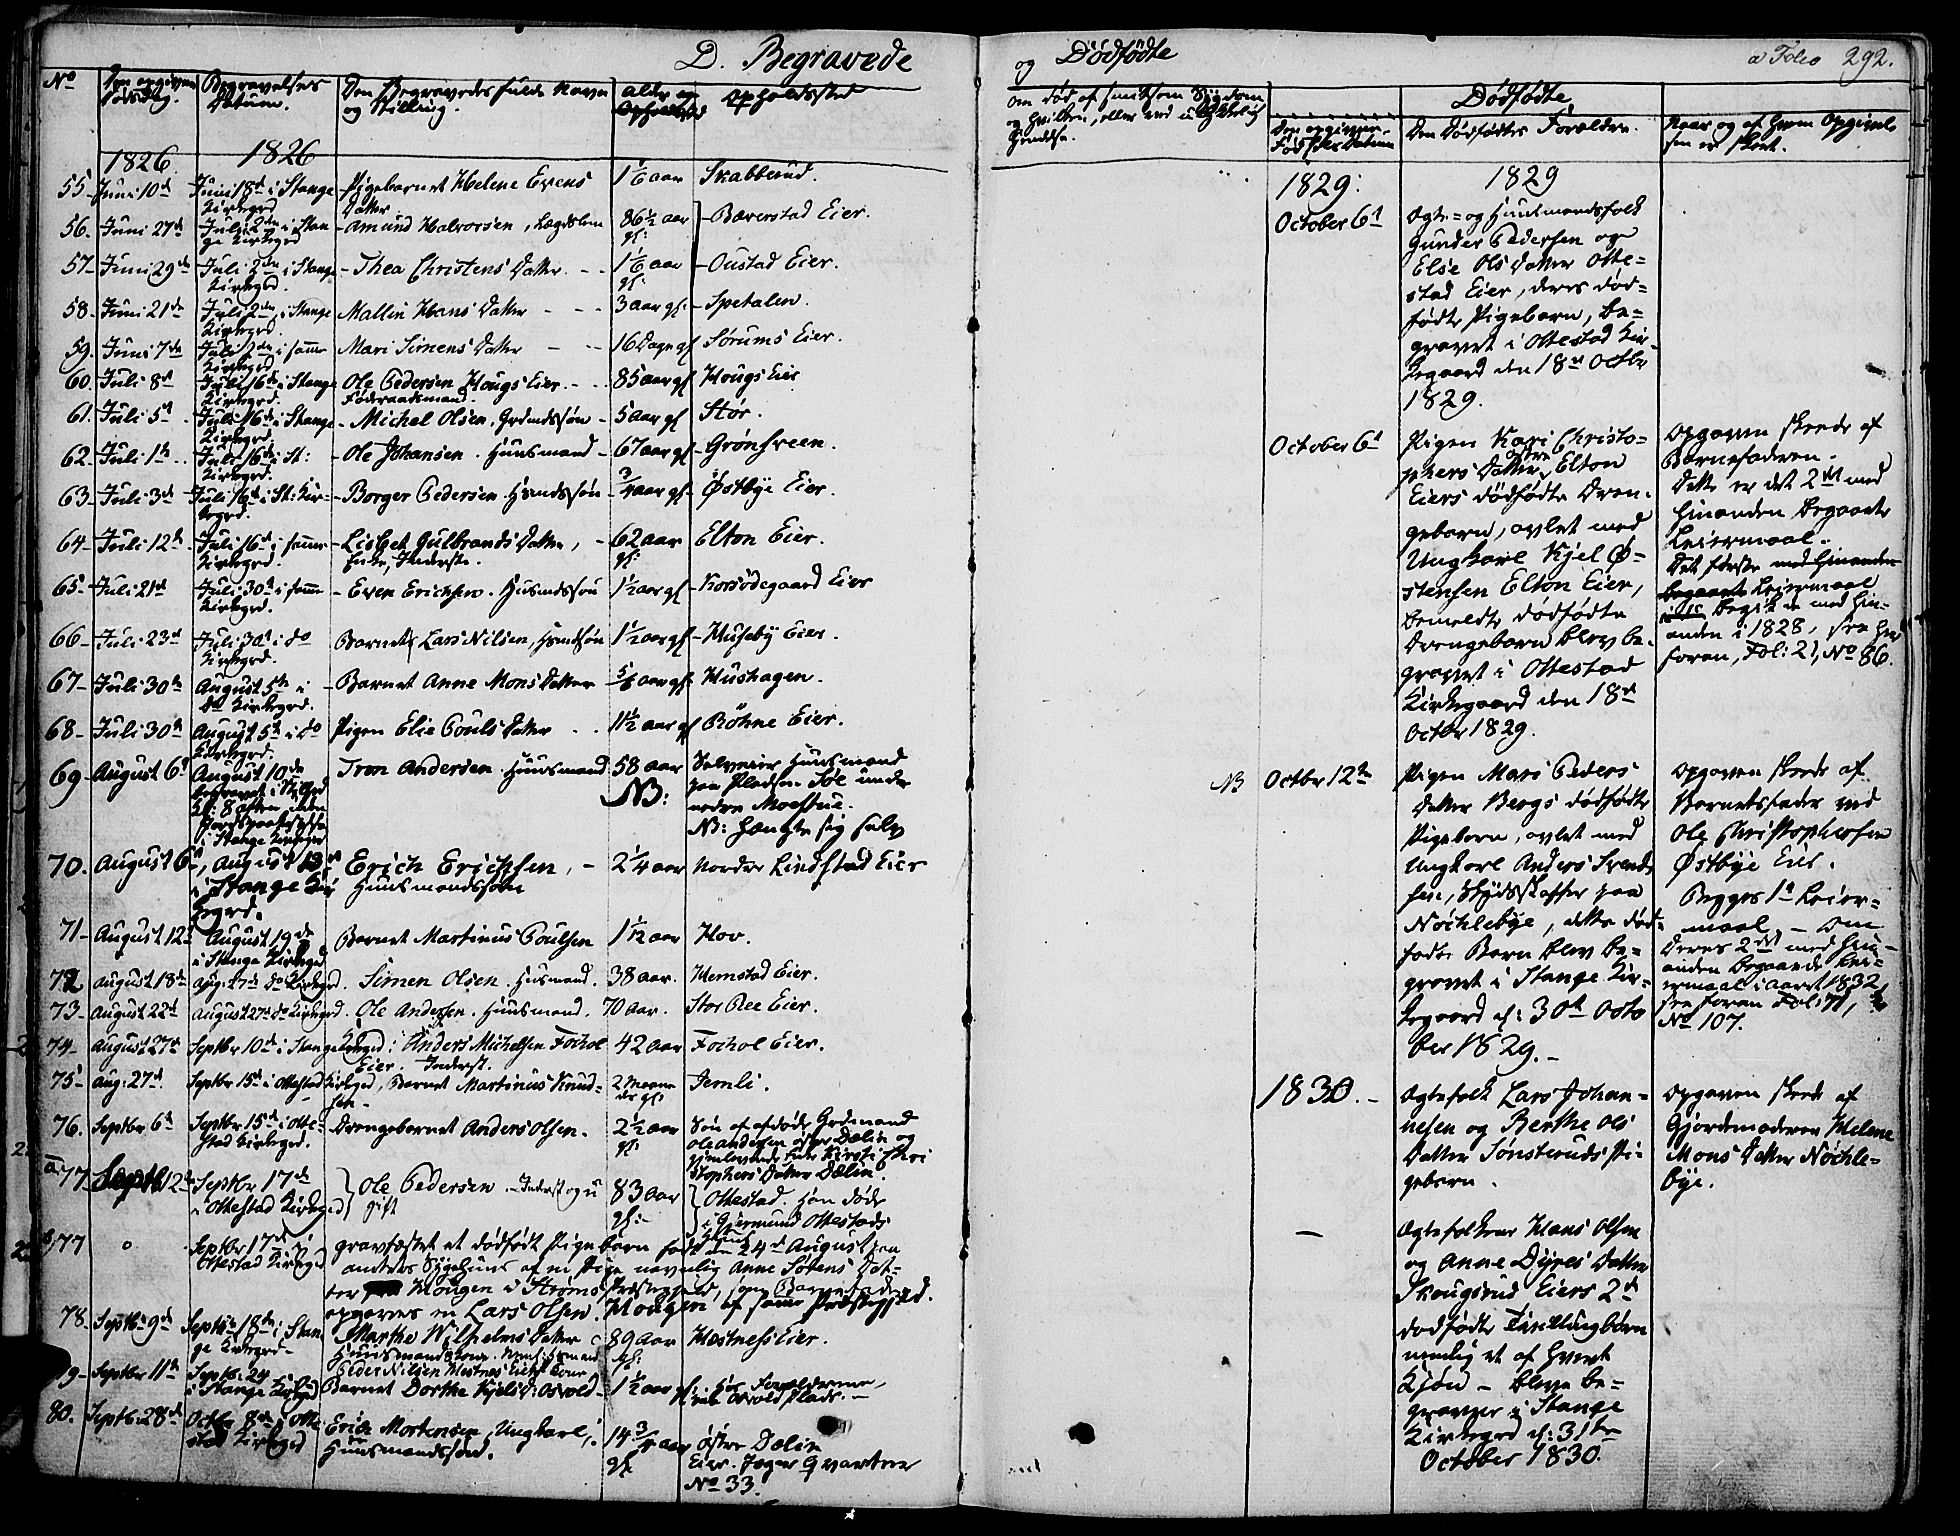 D. Begravede
og Dødfødte
a Folio 292.
No
Begravelses Datum.
Den Begravedes fulde Navn og Stilling.
Alder og
Opholdssted
Dødfødte
Den Dødfødtes Forældre.
Naar og af hvem Opgivelsen er skeet.
1826 1826
55 Juni 10de Juni 18de i Stange Kirkegrd Pigebarnet Helene Evens Datter 1 1/6 aar Skabberud.
56. Juni 27de Juli 2den i Stange Kirkegrd Amund Halvorsen, Lægdslem 86 1/2 aar gl: Bæverstad Eier.
57 Juni 29de Juli 2den i Stange Kirkegrd. Thea Christens Datter 1 1/6 aar gl: Oustad Eier.
58 Juni 21de Juli 2den i Stange Kirkegrd. Mallin Hans Datter 3 aar gl: Spetalen.
59. Juni 7de Juli 2den i samme Kirkegrd. Mari Simens Datter 16 Dage gl Sørums Eier.
60 Juli 8de Juli 16de i Stange Kirkegrd. Ole Pedersen Hougs Eier Føderaadsmand. 85 aar gl Hougs Eie
61. Juli 5te Juli 16de i Stange Kirkegrd. Michel Olsen. Grdmdssøn 5 aar gl Stør.
62 Juli 1ste Juli 16de i St: Kirkegrd. Ole Johansen. Huusmand 67 aar gl Grønsveen.
63 Juli 3de Juli 16de i St. Kirkegrd. Borger Pedersen Hsmdssøn 3/4 aar gl Østbye Eier.
64 Juli 12te Juli 16de i samme Kirkegrd. Lisbet Gulbrands Datter, Enke, Inderste. 62 aar gl: Elton Eier.
65 Juli 21de Juli 30te i samme Kirkegrd. Even Erichsen. Husmdssøn 1 1/2 aar gl Korsødegaard Eier
66 Juli 23de Juli 30te i do Kirkegrd. Barnet Lars Nilsen, Hsmdsøn 1 1/2 aar gl Huseby Eier.
67 Juli 30te August 5te i do Kirkegrd. Barnet Anne Mons Datter 5/6 aar gl Hushagen.
68 Juli 30te August 5te i do Kirkegrd. Pigen Elie Pouls Datter 11 1/2 aar gl Bøhne Eier.
69 August 6te August 10de
i Stange Kirkegrd
Tron Andersen. Huusmand 58 aar
NB:
Selveier Huusmand
paa Pladsen Sæl under
nedre Moestue.
NB: Hængte sig selv
70. August 6te, August 13de i Stange Kirkegrd. Erich Erichsen, Huusmandssøn 2 1/4 aar Nordre Lindstad Eier
71 August 12te August 19de i Stange Kirkegrd Barnet Martinus Poulsen 1 1/12 aar Hov.
72 August 18de do Kirkegrd. Simen Olsen. Husmand. 38 aar. Hemstad Eier.
73 August 22de August 27de do Kirkegrd. Ole Andersen. Huusmand. 70 aar. Stor Ree Eier.
74 August 27de Septbr 10de i Stange Kirkegrd: Anders Michelsen Fochol Eier. Inderst. 42 aar Fochol Eier.
75 Aug: 27de. Septbr 15de i Ottestad Kirkegrd, Barnet Martinus Knudsen 2 Maaneder gl: Jemli.
76. Septbr 6te Septbr 15de i Ottestad Kirkegrd. Drengebarnet Anders Olsen. 2 1/2 aar gl:
Søn af afdøde Grdmand
Ole Andersen østre Dælin og
gjenlevende Enke Kirsti Christophers Datter Dælin.
a 77 Septbr 12te Septbr 17de i Ottestad Kirkegrd Ole Pedersen. Inderst og ugift 83 aar gl:
Ottestad. Han døde
i Gjermund Ottestads
77 Septbr 17de i Ottestad Kirkegrd
gravfæstet et dødfødt Pigebarn født den 24de August paa
amtets Sygehuus af en Pige navnlig Anne Sørens Datter
Hougen i Strøms Præstegjeld, som Barnefader
opgaves en Lars Olsen Hougen af samme Præstegjeld.
78. Septbr 9de Septbr 18de i Stange Kirkegrd. Marthe Wilhelms Datter 89 aar gl: Hestnes Eier.
Peder Nilsen Hestnes Eier
79 Septbr 11te Septbr 24 i Stange Kirkegrd Barnet Dorthe Kjels D: Osvold 1 1/2 aar gl. hos Forældrene,
80. Septb: 28de Octbr 8de i Ottestad Kirkegrd Erich Mortensen, Ungkarl, Huusmandssøn. 14 3/4 aar gl:
østre Dælin
Eier. Jæger Qvarteer
No 33.
1829: 1829
October 6te
Ægte- og Huusmandsfolk
Gunder Pedersen og
Else Ols Datter Ottestad Eier, deres dødfødte Pigebarn, begravet i Ottestad Kirkegaard den 18de Octbr
1829.
October 6te
Pigen Kari Christophers Datter østre Elton
Eiers dødfødte Drengebarn, avlet med
Ungkarl Kjel Østensen Elton Eier,
bemeldte dødfødte
Drengebarn blev begravet i Ottestad
Kirkegaard den 18de
Octbr 1829.
Opgaven skeede af
Barnefaderen.
Dette er det 2det med
hinanden begaaede
Leiermaal.
Det første med hinanden
begaaede Leiermaal
begik de med hinanden i 1828, see her
foran, Fol: 21, No 86.
NB Octbr 12te
Pigen Mari Peders
Datter Bergs dødfødte
Pigebarn, avlet med
Ungkarl Anders Svendsen, Skydsskaffer paa
Nøchlebye, dette dødfødte Barn blev begravet i Stange Kirkegaard d: 30te October 1829.
Opgaven skeede af
Barnets fader ved
Ole Christophersen
Østbye Eier.
Begges 1ste Leiermaal — Om
deres 2det med hinanden begaaede Leiermaal i aaret 1832,
see foran Fol: 71,
No 107.
1830.
Ægtefolk Lars Johannesen og Berthe Ols
Datter Sønsteruds Pigebarn.
Opgaven skeede af
Gjordemoderen Helene
Mons Datter Nøchlebye.
—
Ægtefolkene Hans Olsen
og Anne Dyres Datter
Skougsrud Eiers 2de
dødfødte Tvillingbørn
nemlig et af hvert
Kjøn — bleve begravne i Stange
Kirkegrd d: 31te
October 1830.